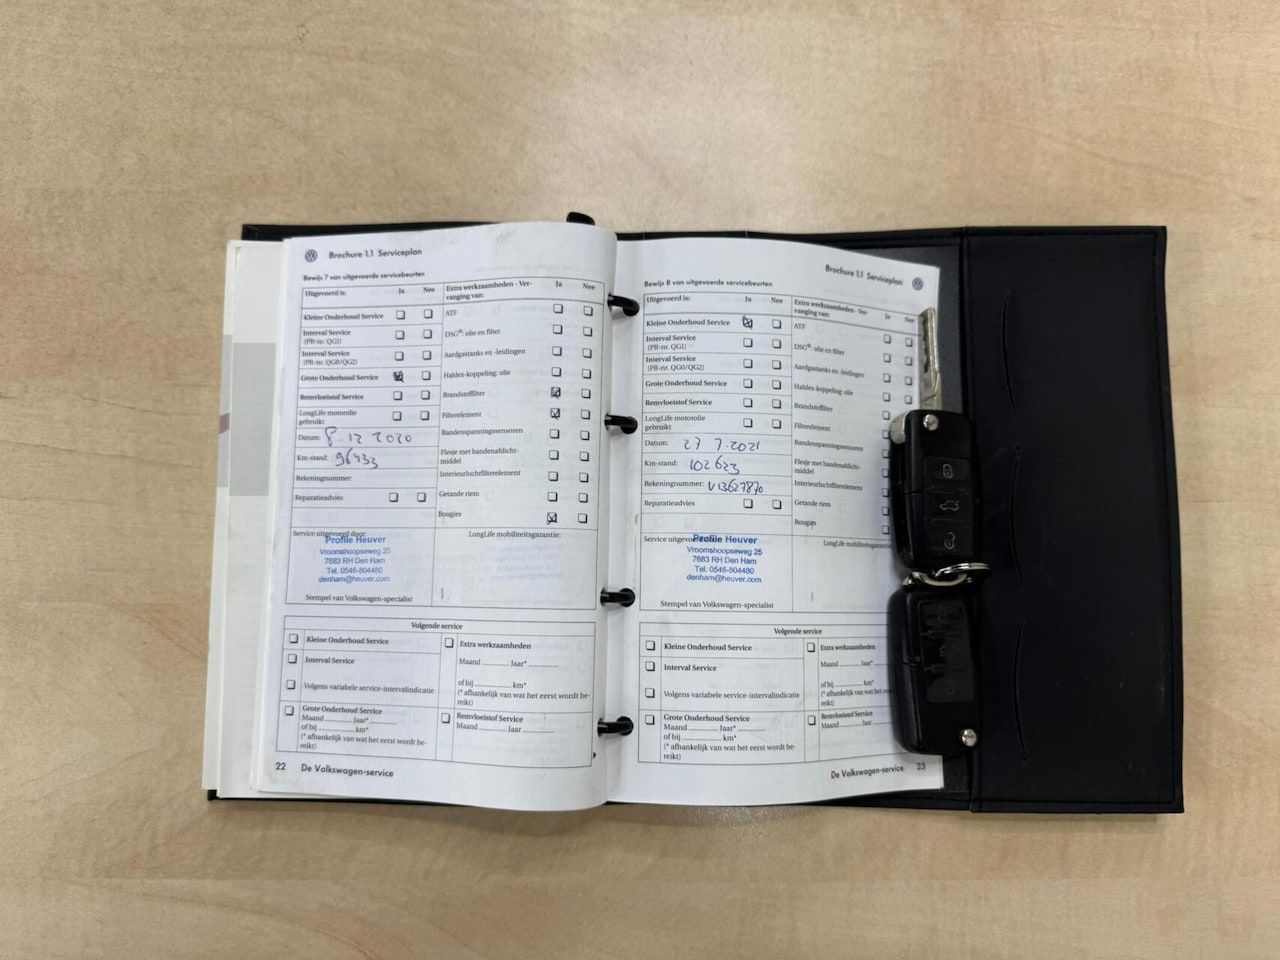 Brochure 1.1 Serviceplan
Bewijs 7 van uitgevoerde servicebeurten
Uitgevoerd is: Ja Nee
Kleine Onderhoud Service
Interval Service
(PR-nr. QG1)
Interval Service
(PR-nr. QG0/QG2)
Grote Onderhoud Service
Remvloeistof Service
LongLife motorolie
gebruikt
Datum: 8.12 2020
Km-stand: 96433
Rekeningnummer:
Reparatieadvies
Extra werkzaamheden - Ver-
vanging van: Ja Nee
ATF
DSG®: olie en filter
Aardgastanks en -leidingen
Haldex-koppeling: olie
Brandstoffilter
Filterelement
Bandenspanningssensoren
Flesje met bandenafdicht-
middel
Interieurluchtfilterelement
Getande riem
Bougies
Service uitgevoerd door:
Profile Heuver
Vroomshoopseweg 25
7683 RH Den Ham
Tel. 0546-804480
denham@heuver.com
Stempel van Volkswagen-specialist
LongLife mobiliteitsgarantie:
Volgende service
Kleine Onderhoud Service
Interval Service
Volgens variabele service-intervalindicatie
Grote Onderhoud Service
Maand Jaar*
of bij km*
(* afhankelijk van wat het eerst wordt be-
reikt)
Extra werkzaamheden
Maand Jaar*
of bij km*
(* afhankelijk van wat het eerst wordt be-
reikt)
Remvloeistof Service
Maand Jaar
22 De Volkswagen-service
Brochure 1.1 Serviceplan
Bewijs 8 van uitgevoerde servicebeurten
Uitgevoerd is: Ja Nee
Kleine Onderhoud Service
Interval Service
(PR-nr. QG1)
Interval Service
(PR-nr. QG0/QG2)
Grote Onderhoud Service
Remvloeistof Service
LongLife motorolie
gebruikt
Datum: 27 7.2021
Km-stand: 102623
Rekeningnummer: V13627870
Reparatieadvies
Extra werkzaamheden - Ver-
vanging van: Ja Nee
ATF
DSG®: olie en filter
Aardgastanks en -leidingen
Haldex-koppeling: olie
Brandstoffilter
Filterelement
Bandenspanningssensoren
Flesje met bandenafdicht-
middel
Interieurluchtfilterelement
Getande riem
Bougies
Profile Heuver
Vroomshoopseweg 25
7683 RH Den Ham
Tel. 0546-804480
denham@heuver.com
Stempel van Volkswagen-specialist
LongLife mobiliteitsgarantie
Volgende service
Kleine Onderhoud Service
Interval Service
Volgens variabele service-intervalindicatie
Grote Onderhoud Service
Maand Jaar*
of bij km*
(* afhankelijk van wat het eerst wordt be-
reikt)
Extra werkzaamheden
Maand Jaar*
of bij km*
(* afhankelijk van wat het eerst
reikt)
Remvloeistof Service
Maand Jaar
De Volkswagen-service 23